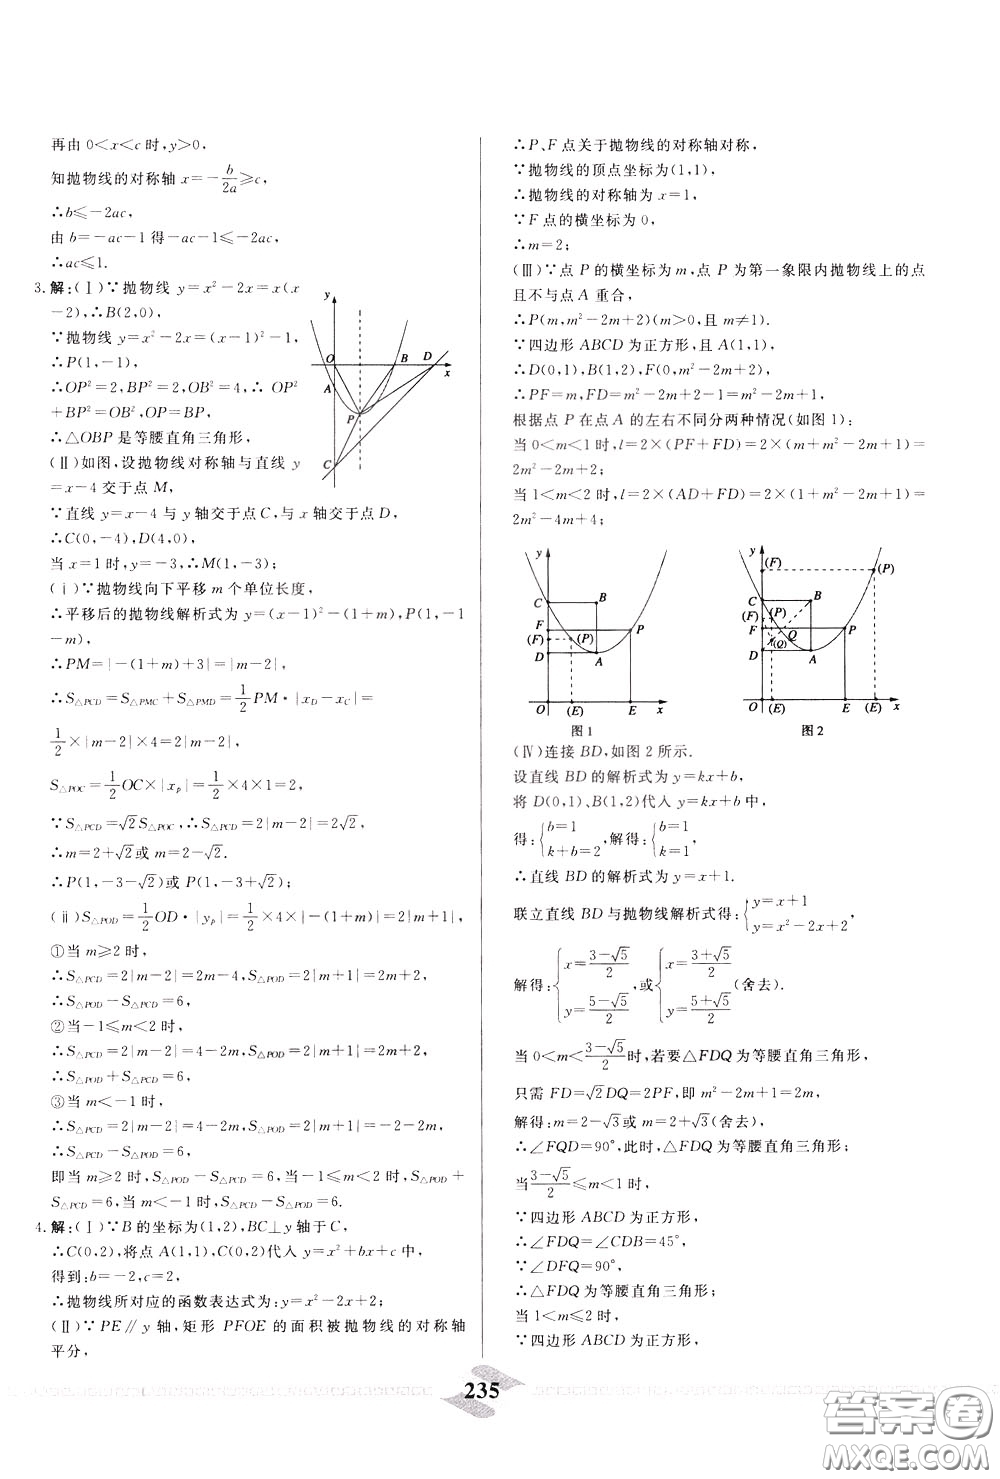 再由 0<x<c 时,y>0,
知抛物线的对称轴 x=-b/2a≥c,
∴b≤-2ac,
由 b=-ac-1 得-ac-1≤-2ac,
∴ac≤1.
3.解:(Ⅰ)∵抛物线 y=x²-2x=x(x
-2),∴B(2,0),
∵抛物线 y=x²-2x=(x-1)²-1,
∴P(1,-1),
∴OP²=2,BP²=2,OB²=4,∴ OP²
+BP²=OB²,OP=BP,
∴△OBP 是等腰直角三角形,
(Ⅱ)如图,设抛物线对称轴与直线 y
=x-4 交于点 M,
∵直线 y=x-4 与 y 轴交于点 C,与 x 轴交于点 D,
∴C(0,-4),D(4,0),
当 x=1 时,y=-3,∴M(1,-3);
(ⅰ)∵抛物线向下平移 m 个单位长度,
∴平移后的抛物线解析式为 y=(x-1)²-(1+m),P(1,-1
-m),
∴PM=|-(1+m)+3|=|m-2|,
∴S△PCD=S△PMC+S△PMD=1/2PM·|xD-xC|=
1/2×|m-2|×4=2|m-2|,
S△POC=1/2OC×|xp|=1/2×4×1=2,
∵S△PCD=√2S△POC,∴S△PCD=2|m-2|=2√2,
∴m=2+√2或 m=2-√2.
∴P(1,-3-√2)或 P(1,-3+√2);
(ⅱ)S△POD=1/2OD·|yp|=1/2×4×|-(1+m)|=2|m+1|,
①当 m≥2 时,
∴S△PCD=2|m-2|=2m-4,S△POD=2|m+1|=2m+2,
∴S△POD-S△PCD=6,
②当-1≤m<2 时,
∴S△PCD=2|m-2|=4-2m,S△POD=2|m+1|=2m+2,
∴S△POD+S△PCD=6,
③当 m<-1 时,
∴S△PCD=2|m-2|=4-2m,S△POD=2|m+1|=-2-2m,
∴S△PCD-S△POD=6,
即当 m≥2 时,S△POD-S△PCD=6,当-1≤m<2 时,S△POD+
S△PCD=6,当 m<-1 时,S△PCD-S△POD=6.
4.解:(Ⅰ)∵B 的坐标为(1,2),BC⊥y 轴于 C,
∴C(0,2),将点 A(1,1),C(0,2)代入 y=x²+bx+c 中,
得到:b=-2,c=2,
∴抛物线所对应的函数表达式为:y=x²-2x+2;
(Ⅱ)∵PE∥y 轴,矩形 PFOE 的面积被抛物线的对称轴
平分,
y
O
B
D
x
A
P
C
∴P、F 点关于抛物线的对称轴对称,
∵抛物线的顶点坐标为(1,1),
∴抛物线的对称轴为 x=1,
∵F 点的横坐标为 0,
∴m=2;
(Ⅲ)∵点 P 的横坐标为 m,点 P 为第一象限内抛物线上的点
且不与点 A 重合,
∴P(m,m²-2m+2)(m>0,且 m≠1).
∵四边形 ABCD 为正方形,且 A(1,1),
∴D(0,1),B(1,2),F(0,m²-2m+2),
∴PF=m,FD=m²-2m+2-1=m²-2m+1,
根据点 P 在点 A 的左右不同分两种情况(如图 1):
当 0<m<1 时,l=2×(PF+FD)=2×(m+m²-2m+1)=
2m²-2m+2;
当 1<m<2 时,l=2×(AD+FD)=2×(1+m²-2m+1)=
2m²-4m+4;
y
C
B
F
P
(F)
(P)
D
A
O
(E)
E
x
图 1
y
(F)
(P)
C
B
(F)
F
Q
P
(Q)
D
A
O
(E)
E
(E)
x
图 2
(Ⅳ)连接 BD,如图 2 所示.
设直线 BD 的解析式为 y=kx+b,
将 D(0,1)、B(1,2)代入 y=kx+b 中,
得:{b=1 k+b=2,解得:{b=1 k=1
∴直线 BD 的解析式为 y=x+1.
联立直线 BD 与抛物线解析式得:{y=x+1 y=x²-2x+2,
解得:{x=(3-√5)/2 y=(5-√5)/2,或{x=(3+√5)/2 y=(5+√5)/2(舍去).
当 0<m<(3-√5)/2时,若要△FDQ 为等腰直角三角形,
只需 FD=√2DQ=2PF,即 m²-2m+1=2m,
解得:m=2-√3或 m=2+√3(舍去),
∴∠FQD=90°,此时,△FDQ 为等腰直角三角形;
当(3-√5)/2≤m<1 时,
∵四边形 ABCD 为正方形,
∴∠FDQ=∠CDB=45°,
∵∠DFQ=90°,
∴△FDQ 为等腰直角三角形;
当 1<m≤2 时,
∵四边形 ABCD 为正方形,
235
答案圈
MXQE.COM